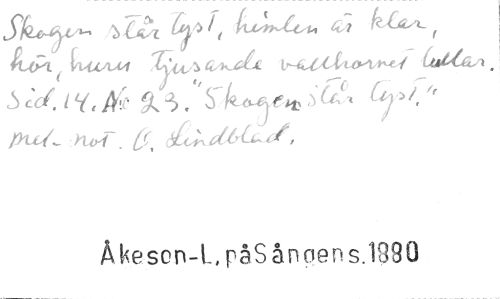 Skogen står tyst, himlen är klar,
hör, huru tjusande vallhornet lullar.
Sid. 14. No 23. "Skogen står tyst."
mel. not. O. Lindblad.
Åkeson-L, påSångens.1880